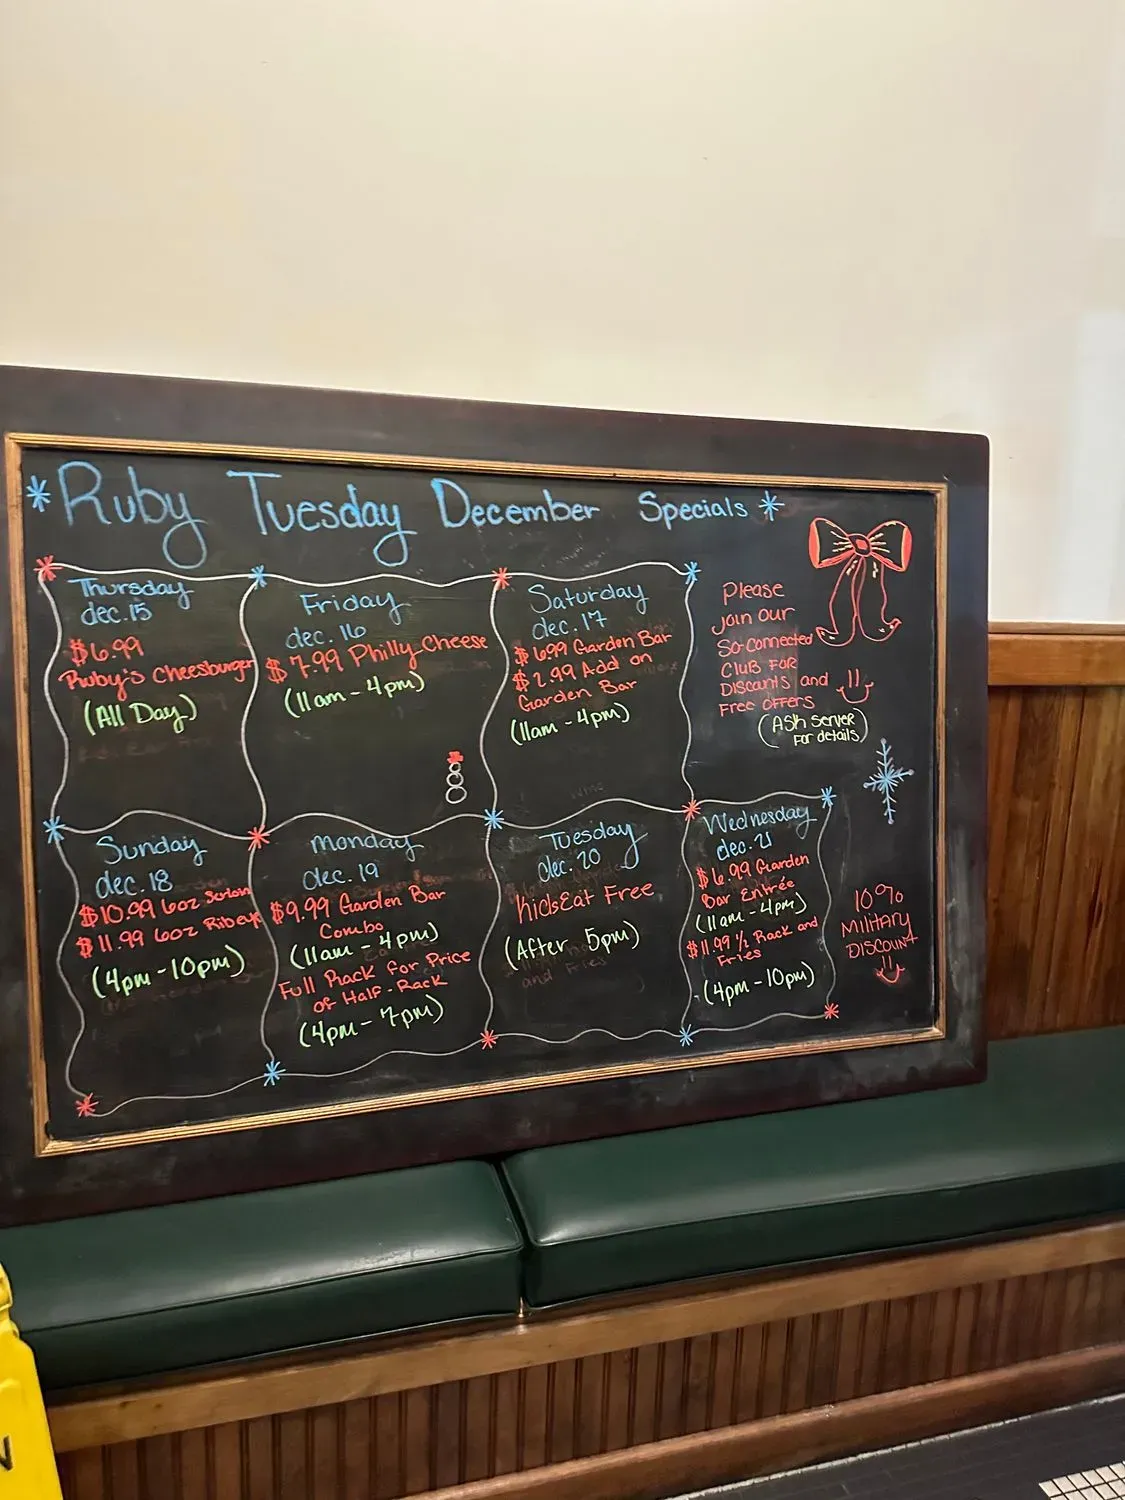 Ruby Tuesday December Specials
Thursday
dec. 15
$6.99
Ruby's Cheesburger
(All Day)
Friday
dec. 16
$7.99 Philly Cheese
(11am - 4pm)
Saturday
dec. 17
$6.99 Garden Bar
$2.99 Add on
Garden Bar
(11am - 4pm)
Please
join our
So Connected
Club For
Discants and
Free offers
(Ask Server
For details)
Sunday
dec. 18
$10.99 6oz Sirloin
$11.99 6oz Ribeye
(4pm - 10pm)
Monday
dec. 19
$9.99 Garden Bar
Combo
(11am - 4pm)
Full Rack for Price
of Half-Rack
(4pm - 7pm)
Tuesday
dec. 20
Kids Eat Free
(After 5pm)
and Fries
Wednesday
dec. 21
$6.99 Garden
Bar Entrée
(11am - 4pm)
$11.99 ½ Rack and
Fries
(4pm - 10pm)
10%
Military
Discount